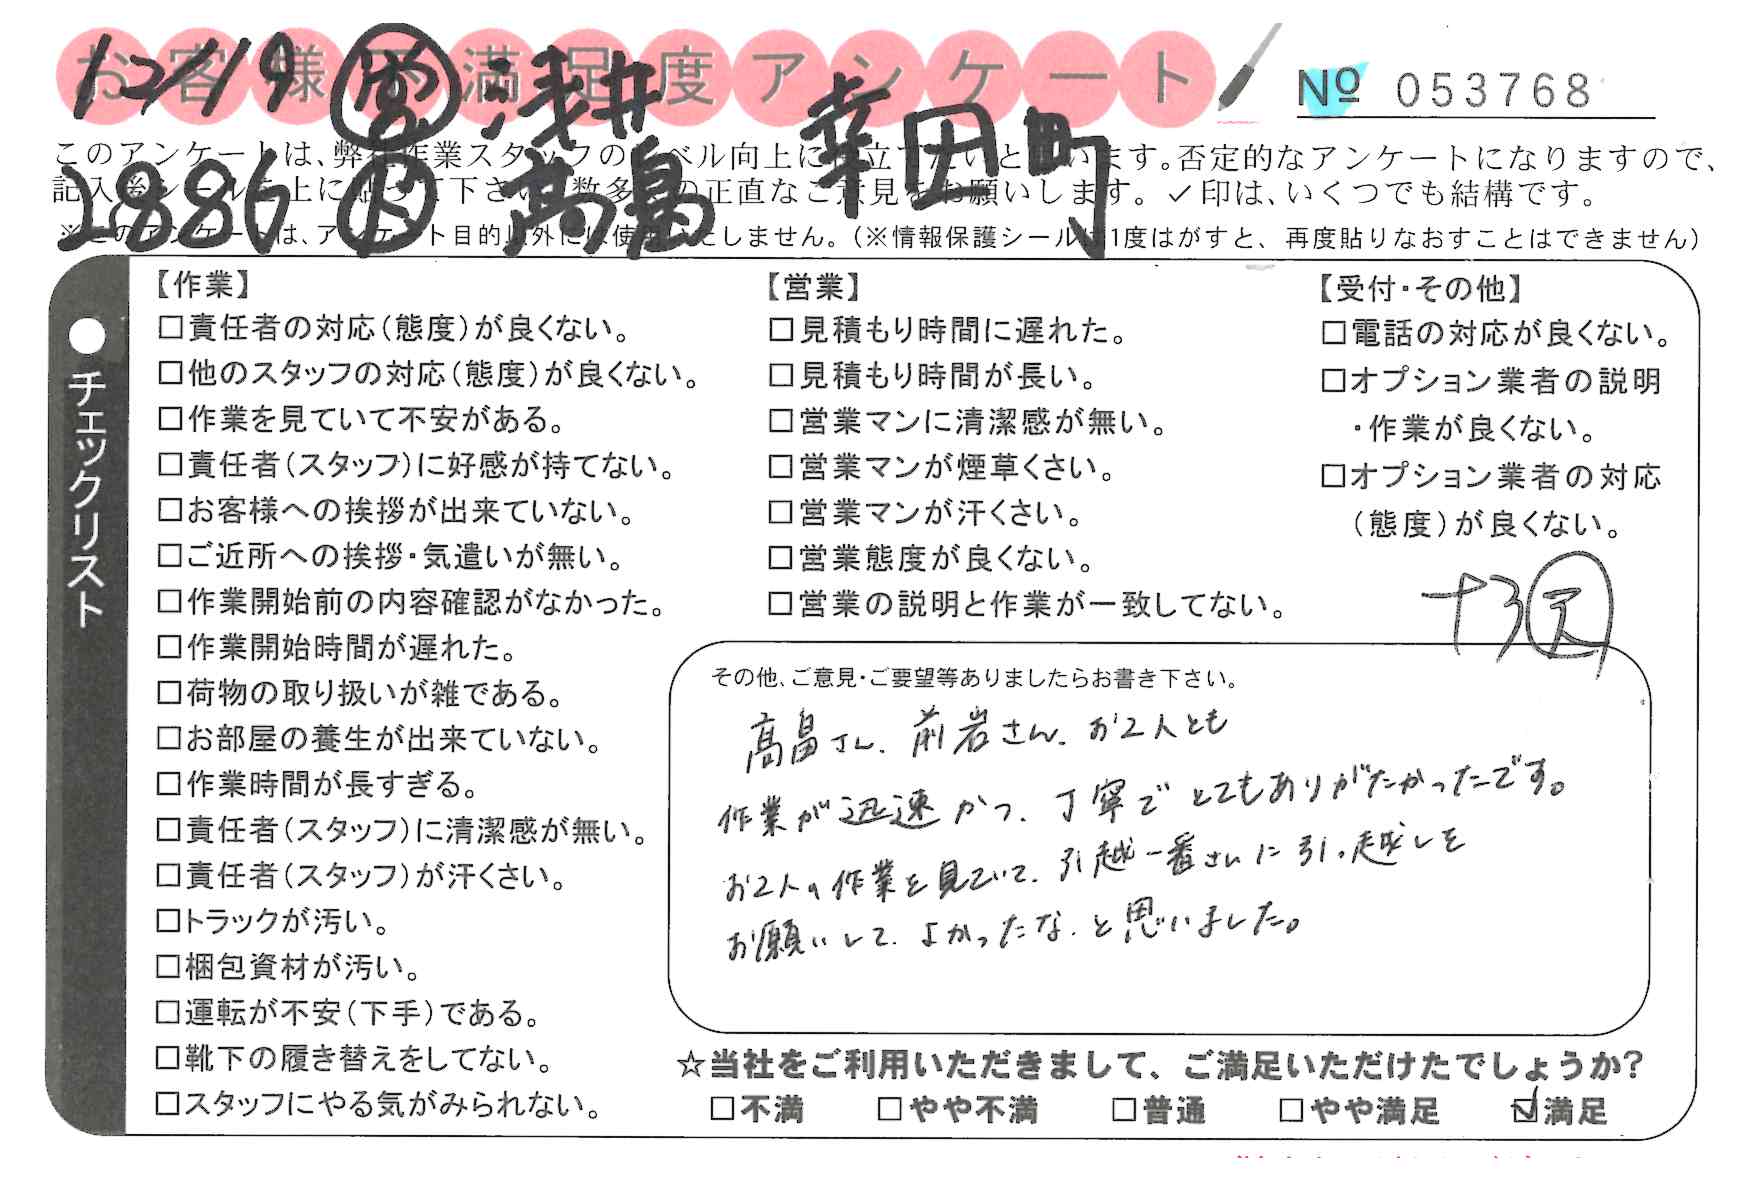 お客様不満足度アンケート
№ 053768
12/19 営 浅井 幸田町
2886 高畠
このアンケートは、弊社作業スタッフのレベル向上に役立てたいと思います。否定的なアンケートになりますので、
記入後シールを上に貼って下さい。数多くの正直なご意見をお願いします。✓印は、いくつでも結構です。
※このアンケートは、アンケート目的以外には使用いたしません。(※情報保護シールは1度はがすと、再度貼りなおすことはできません)
●チェックリスト
【作業】
□責任者の対応(態度)が良くない。
□他のスタッフの対応(態度)が良くない。
□作業を見ていて不安がある。
□責任者(スタッフ)に好感が持てない。
□お客様への挨拶が出来ていない。
□ご近所への挨拶・気遣いが無い。
□作業開始前の内容確認がなかった。
□作業開始時間が遅れた。
□荷物の取り扱いが雑である。
□お部屋の養生が出来ていない。
□作業時間が長すぎる。
□責任者(スタッフ)に清潔感が無い。
□責任者(スタッフ)が汗くさい。
□トラックが汚い。
□梱包資材が汚い。
□運転が不安(下手)である。
□靴下の履き替えをしてない。
□スタッフにやる気がみられない。
【営業】
□見積もり時間に遅れた。
□見積もり時間が長い。
□営業マンに清潔感が無い。
□営業マンが煙草くさい。
□営業マンが汗くさい。
□営業態度が良くない。
□営業の説明と作業が一致してない。
【受付・その他】
□電話の対応が良くない。
□オプション業者の説明
・作業が良くない。
□オプション業者の対応
(態度)が良くない。
+3
その他、ご意見・ご要望等ありましたらお書き下さい。
高畠さん、前岩さん、お2人とも
作業が迅速かつ、丁寧でとてもありがたかったです。
お2人の作業を見ていて、引越一番さんに引っ越しを
お願いして、よかったな、と思いました。
☆当社をご利用いただきまして、ご満足いただけたでしょうか?
□不満 □やや不満 □普通 □やや満足 ☑満足